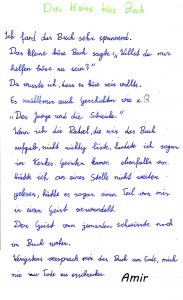 Das kleine böse Buch
Ich fand das Buch sehr spannend.
Das kleine böse Buch sagte: „Willst du mir
helfen böse zu sein?"
Da wusste ich, dass es böse sein wollte.
Es erzählt mir auch Geschichten wie z.B
"Der Junge und die Schnecke".
Wenn ich die Rätsel, die mir das Buch
aufgab, nicht richtig löste, landete ich sogar
im Kerker. Geister kamen ebenfalls vor.
Hätte ich an einer Stelle nicht weiter-
gelesen, hätte es sogar einen Teil von mir
in einen Geist verwandelt.
Der Geist von jemanden schwirrte noch
im Buch umher.
Wenigstens versprach mir das Buch am Ende, mich
nie mehr zu erschrecken.
Amir